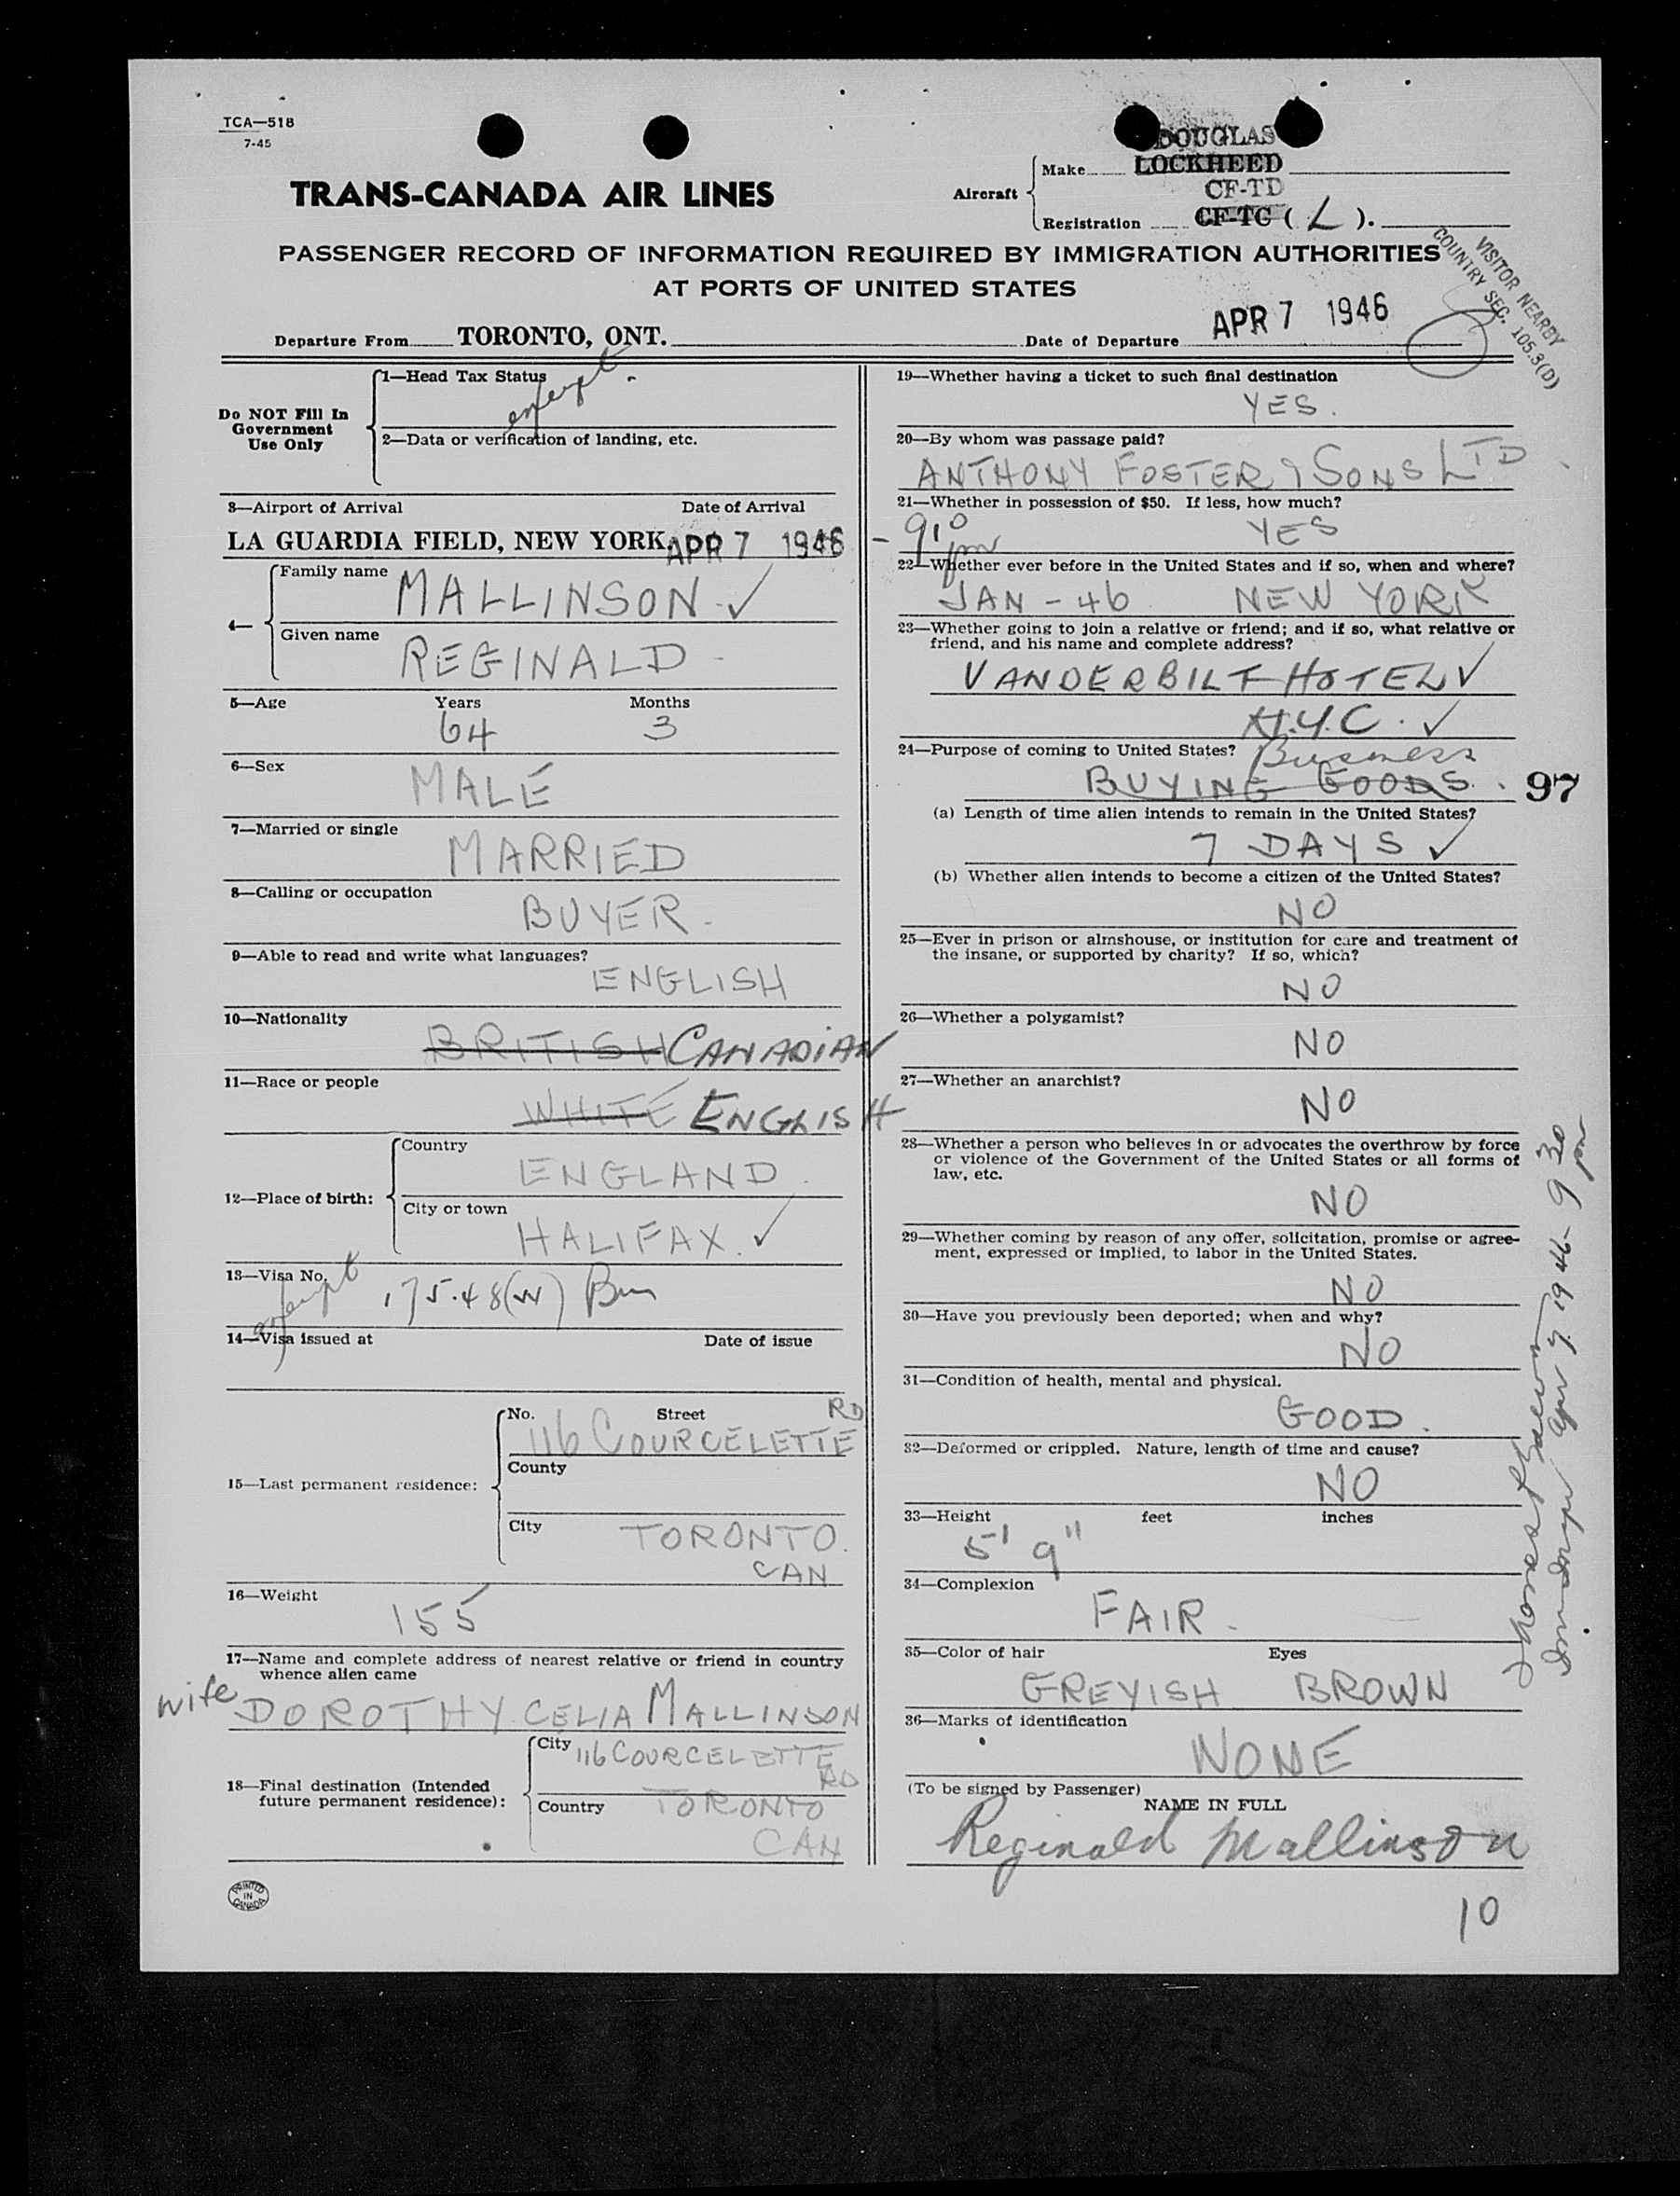 TCA—518
7-45
TRANS-CANADA AIR LINES
Aircraft
Make
DOUGLAS
LOCKHEED
CF-TD
Registration CF-TC ( L ).
PASSENGER RECORD OF INFORMATION REQUIRED BY IMMIGRATION AUTHORITIES
AT PORTS OF UNITED STATES
VISITOR NEARBY
COUNTRY SEC. 105.3(D)
Departure From TORONTO, ONT.
Date of Departure APR 7 1946
Do NOT Fill In
Government
Use Only
1—Head Tax Status
exempt
2—Data or verification of landing, etc.
3—Airport of Arrival Date of Arrival
LA GUARDIA FIELD, NEW YORK, APR 7 1946 - 9 10 pm
4—
Family name MALLINSON ✓
Given name REGINALD -
5—Age Years Months
64 3
6—Sex
MALE
7—Married or single
MARRIED
8—Calling or occupation
BUYER -
9—Able to read and write what languages?
ENGLISH
10—Nationality
BRITISH CANADIAN
11—Race or people
WHITE ENGLISH
12—Place of birth:
Country
ENGLAND
City or town
HALIFAX. ✓
13—Visa No.
exempt 175.48(W)
14—Visa issued at Date of issue
15—Last permanent residence:
No. Street RD
116 COURCELETTE
County
City TORONTO.
CAN
16—Weight
155
17—Name and complete address of nearest relative or friend in country
whence alien came
wife DOROTHY CELIA MALLINSON
18—Final destination (Intended
future permanent residence):
City 116 COURCELETTE
RD
Country TORONTO
CAN
PRINTED
IN
CANADA
19—Whether having a ticket to such final destination
YES.
20—By whom was passage paid?
ANTHONY FOSTER & SONS LTD.
21—Whether in possession of $50. If less, how much?
YES
22—Whether ever before in the United States and if so, when and where?
JAN - 46 NEW YORK
23—Whether going to join a relative or friend; and if so, what relative or
friend, and his name and complete address?
VANDERBILT HOTEL ✓
N.Y.C. ✓
24—Purpose of coming to United States? Business
BUYING GOODS. 97
(a) Length of time alien intends to remain in the United States?
7 DAYS ✓
(b) Whether alien intends to become a citizen of the United States?
NO
25—Ever in prison or almshouse, or institution for care and treatment of
the insane, or supported by charity? If so, which?
NO
26—Whether a polygamist?
NO
27—Whether an anarchist?
NO
28—Whether a person who believes in or advocates the overthrow by force
or violence of the Government of the United States or all forms of
law, etc.
NO
29—Whether coming by reason of any offer, solicitation, promise or agree-
ment, expressed or implied, to labor in the United States.
NO
30—Have you previously been deported; when and why?
NO
31—Condition of health, mental and physical.
GOOD.
32—Deformed or crippled. Nature, length of time and cause?
NO
33—Height feet inches
5' 9"
34—Complexion
FAIR -
35—Color of hair Eyes
GREYISH BROWN
36—Marks of identification
NONE
(To be signed by Passenger)
NAME IN FULL
Reginald Mallinson
10
Thomas
Apr 7. 1946- 9 30 pm